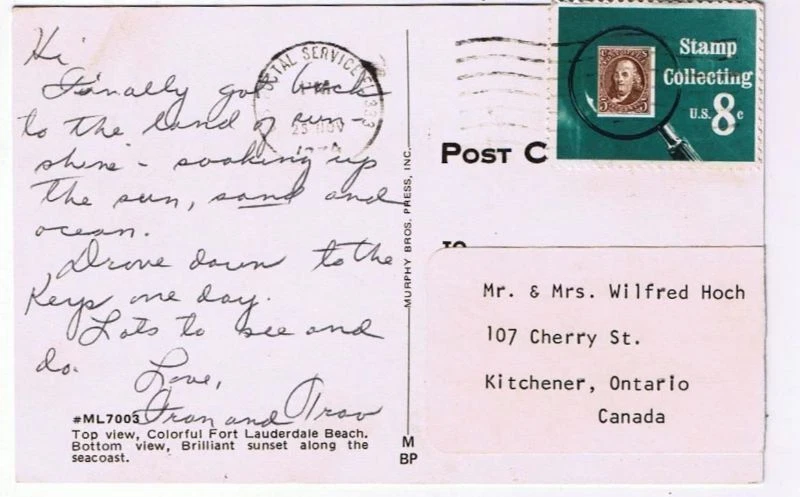 Hi
Finally got back
to the land of sun-
shine - soaking up
the sun, sand and
ocean.
Drove down to the
Keys one day.
Lots to see and
do.
Love,
Fran and Trav
#ML7003
Top view, Colorful Fort Lauderdale Beach.
Bottom view, Brilliant sunset along the
seacoast.
MURPHY BROS. PRESS, INC.
M
BP
POSTAL SERVICE 333
25 NOV
POST C
Stamp
Collecting
U.S. 8c
TO
Mr. & Mrs. Wilfred Hoch
107 Cherry St.
Kitchener, Ontario
Canada